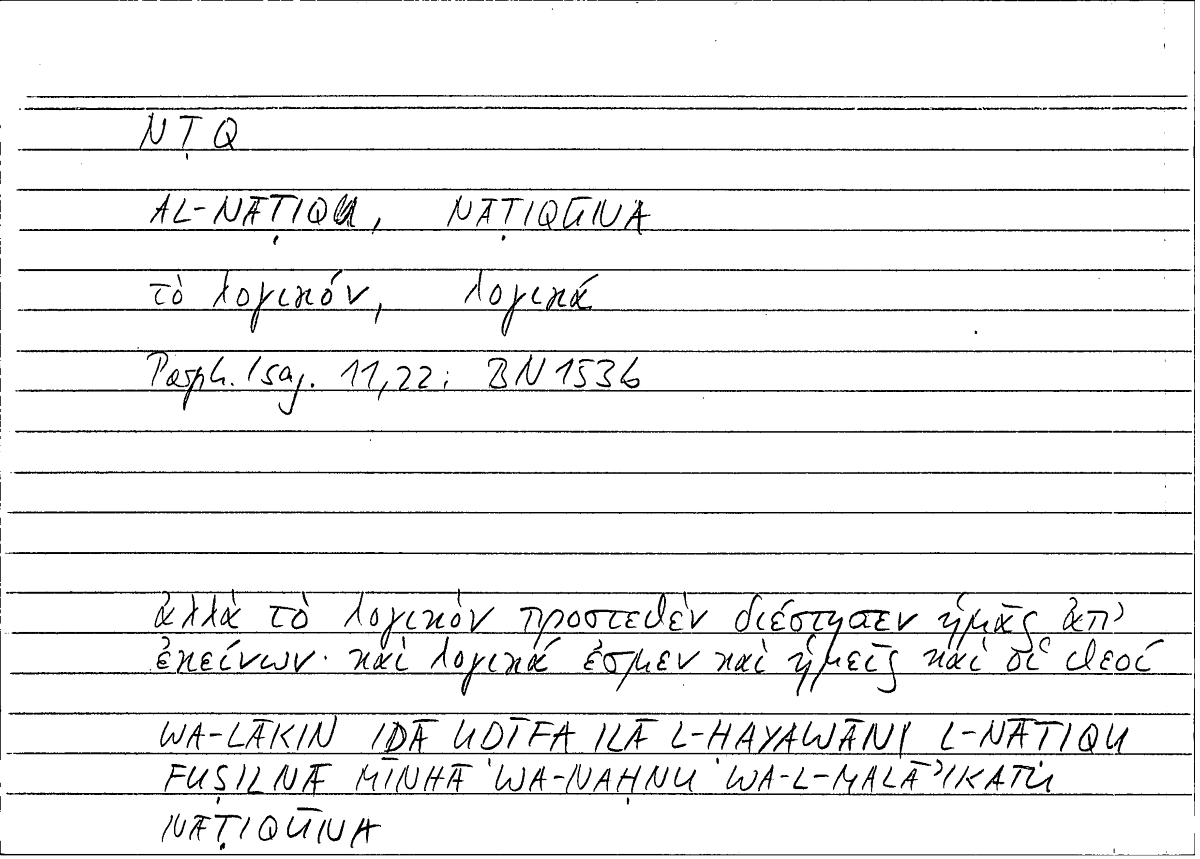 NṬQ
AL-NĀṬIQU, NĀṬIQŪNA
τὸ λογικόν, λογικά
Porph. Isag. 11,22; BN 1536
ἀλλὰ τὸ λογικὸν προστεθὲν διέστησεν ἡμᾶς ἀπ'
ἐκείνων· καὶ λογικά ἐσμεν καὶ ἡμεῖς καὶ οἱ θεοί
WA-LĀKIN IḎĀ UḌĪFA ILĀ L-ḤAYAWĀNI L-NĀṬIQU
FUṢILNĀ MINHĀ WA-NAḤNU WA-L-MALĀʾIKATU
NĀṬIQŪNA